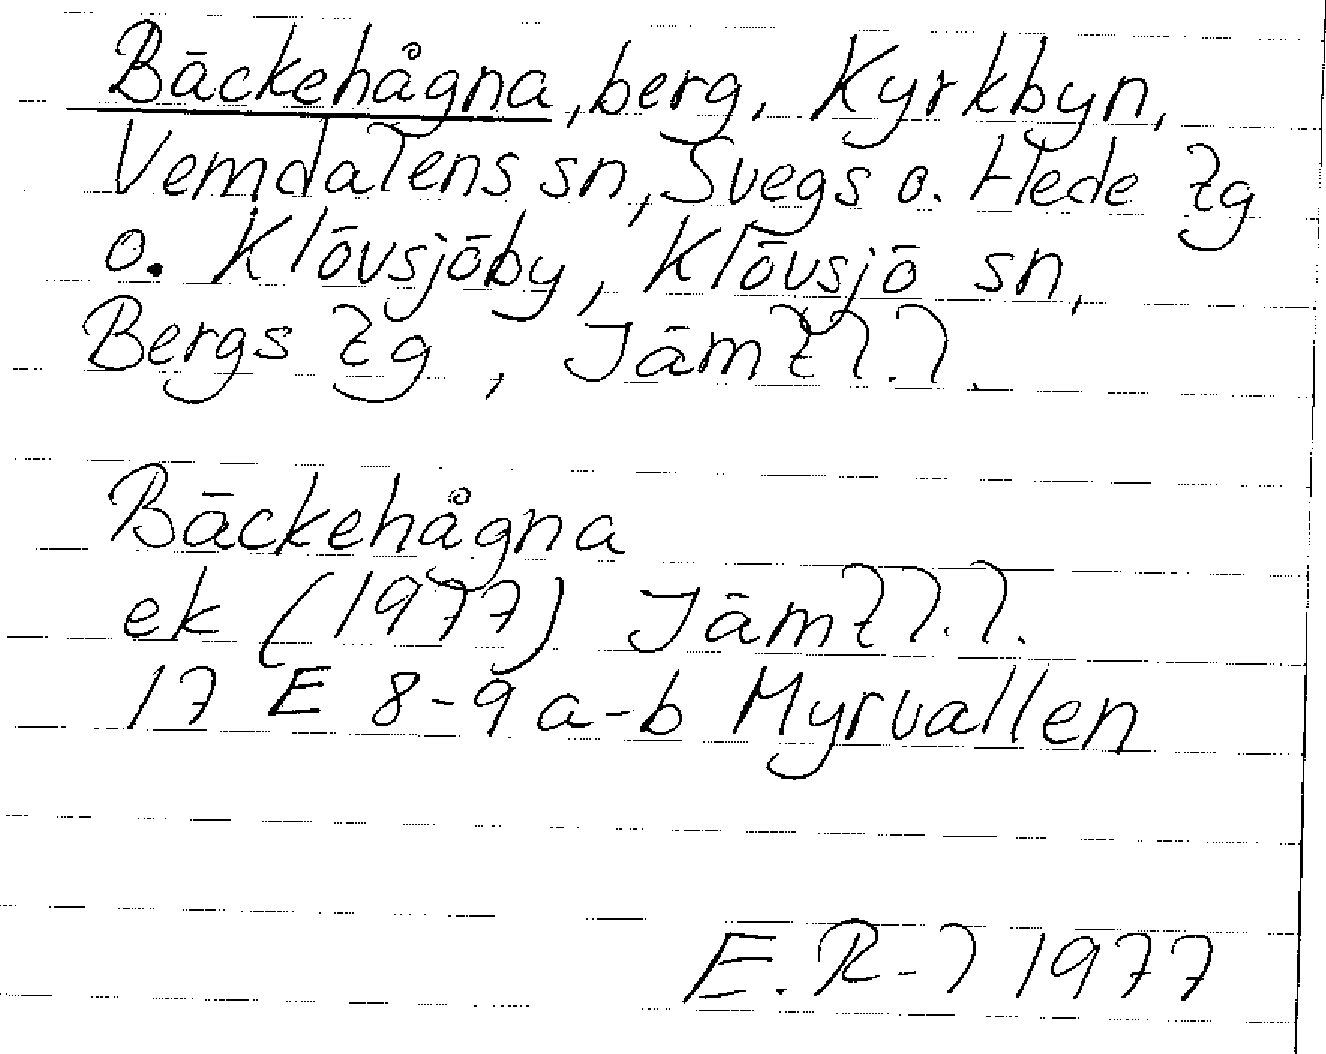 Bäckehågna, berg, Kyrkbyn,
Vemdalens sn, Svegs o. Hede tg
o. Klövsjöby, Klövsjö sn,
Bergs tg, Jämtl.l.
Bäckehågna
ek (1977) Jämtl.l.
17 E 8-9 a-b Myrvallen
E.R-l 1977